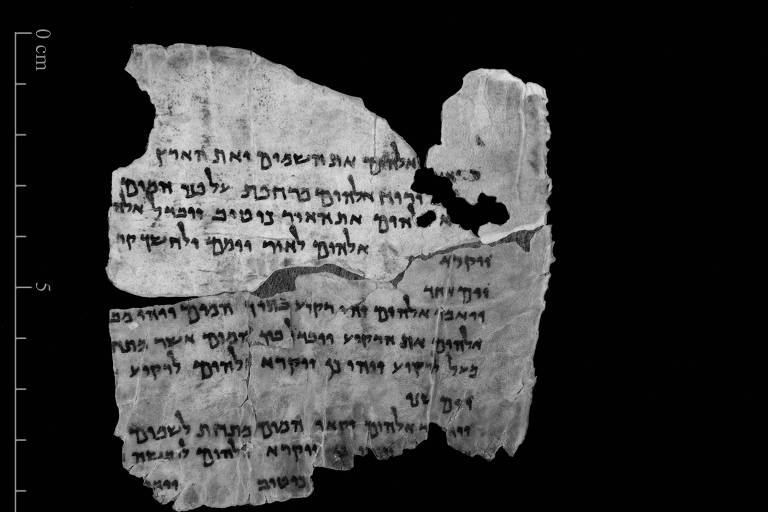 0 cm
אלהים את השמים ואת הארץ
ורוח אלהים מרחפת על פני המים
אלהים את האור כי טוב ויבדל אלה
אלהים לאור יומם ולחשך קר
ויקרא
5
יום אחד
ויאמר אלהים יהי רקיע בתוך המים ויהי מב
אלהים את הרקיע ויבדל בין המים אשר מתחת
מעל לרקיע ויהי כן ויקרא אלהים לרקיע
יום שני
ויאמר אלהים יקאו המים מתחת לשמים
ויקרא אלהים ליבשה
כי טוב